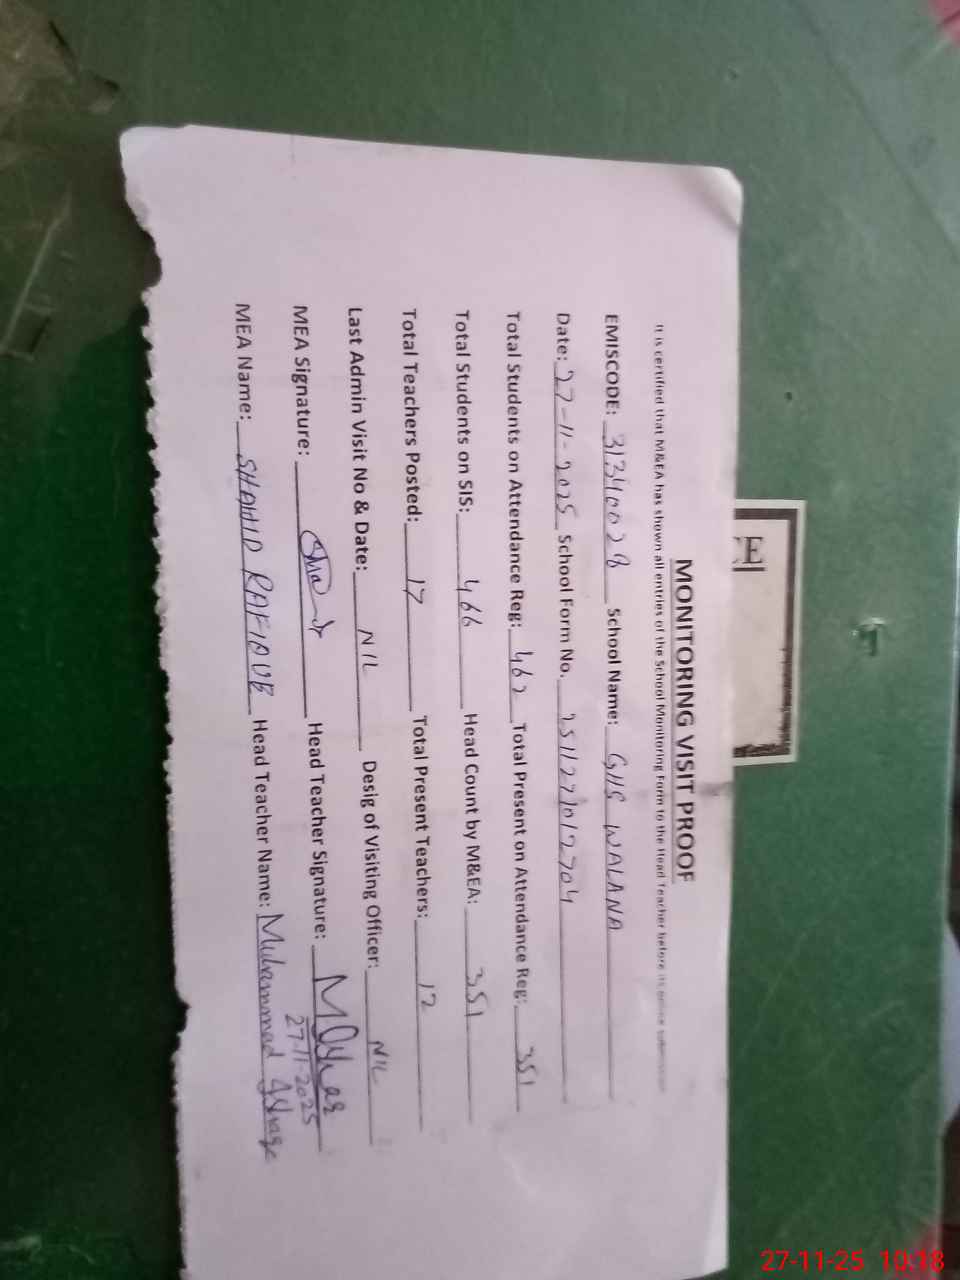 CE
MONITORING VISIT PROOF
It is certified that M&EA has shown all entries of the School Monitoring Form to the Head Teacher before its online submission
EMISCODE: 31340028 School Name: GHS WALANA
Date: 27-11-2025 School Form No. 2511271012704
Total Students on Attendance Reg: 462 Total Present on Attendance Reg: 351
Total Students on SIS: 466 Head Count by M&EA: 351
Total Teachers Posted: 17 Total Present Teachers: 12
Last Admin Visit No & Date: NIL Desig of Visiting Officer: NIL
MEA Signature: Head Teacher Signature:
27-11-2025
MEA Name: SHAHID RAFIQUE Head Teacher Name: Muhammad
27-11-25 10:18